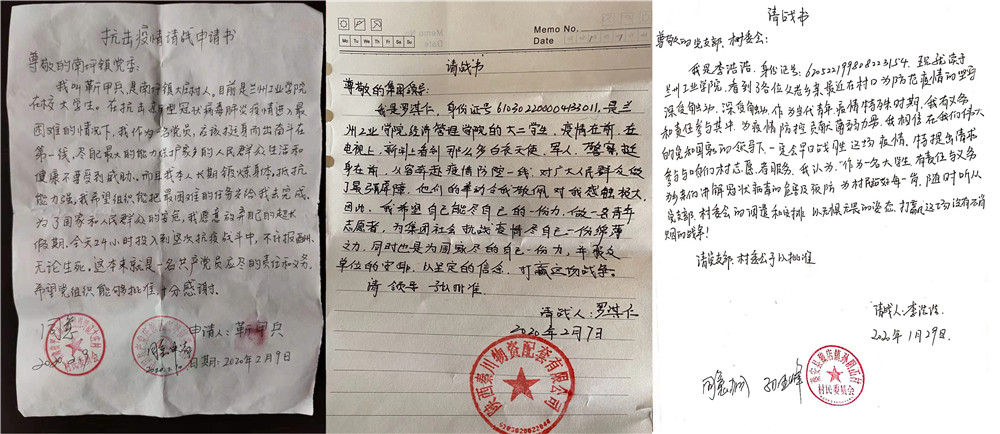 抗击疫情请战申请书
尊敬的南坪镇党委:
我叫靳甲兵,是南坪镇大庄村人,目前是兰州工业学院
在校大学生。在抗击新型冠状病毒肺炎疫情进入最
困难的情况下,我作为一名党员,应该挺身而出奋斗在
第一线,尽能最大的能力保护家乡的人民群众生活和
健康不要受到威胁。而且我本人长期锻炼身体,抵抗
能力强,我希望组织能把最困难的任务给我去完成。
为了国家和人民群众的安危,我愿意放弃自己的超大
假期,今天24小时投入到这次抗疫战斗中,不计报酬,
无论生死,这本来就是一名共产党员应尽的责任和义务。
希望党组织能够批准,十分感谢。
同意
申请人:靳甲兵
日期:2020年2月9日
Memo No.
Date
Mo Tu We Th Fr Sa Su
请战书
尊敬的集团领导:
我是罗淇仁,身份证号610302200004233011,是兰
州工业学院经济管理学院的大二学生,疫情在前,在
电视上,新闻上看到那么多白衣天使、军人、警察挺
身在前,从容奔赴疫情防控一线,对广大人民群众做
了最强屏障,他们的举动令我敬佩,对我感触极大
因此,我希望自己能尽自己的一份力,做一名青年
志愿者,为集团社会抗战疫情尽自己一份绵薄
之力,同时也是为国家尽的自己一份力,并服从
单位的安排,以坚定的信念,打赢这场战争。
请领导予以批准。
请战人:罗淇仁
2020年2月7日
陕西秦川物资配套有限公司
请战书
尊敬的党支部、村委会:
我是李浩浩,身份证号:620522199808223154,现就读于
兰州工业学院,看到各位父老乡亲最近在村口为防范疫情的坚守
深受触动,深受触动。作为当代青年,疫情特殊时期,我有义务
和责任参与其中,为疫情防控贡献微薄力量,我相信在我们伟大
的党和国家的领导下一定会早日战胜这场疫情,特提出请求
参与咱们村志愿者服务。我认为,作为一名大学生有责任与义务
为乡亲们讲解冠状病毒的危害及预防,为村民站好每一岗,随时听从
党支部、村委会的调遣和安排,以无惧无畏的姿态,打赢这场没有硝
烟的战争!
请党支部、村委会予以批准
请战人:李浩浩
2020年1月29日
同意
村民委员会